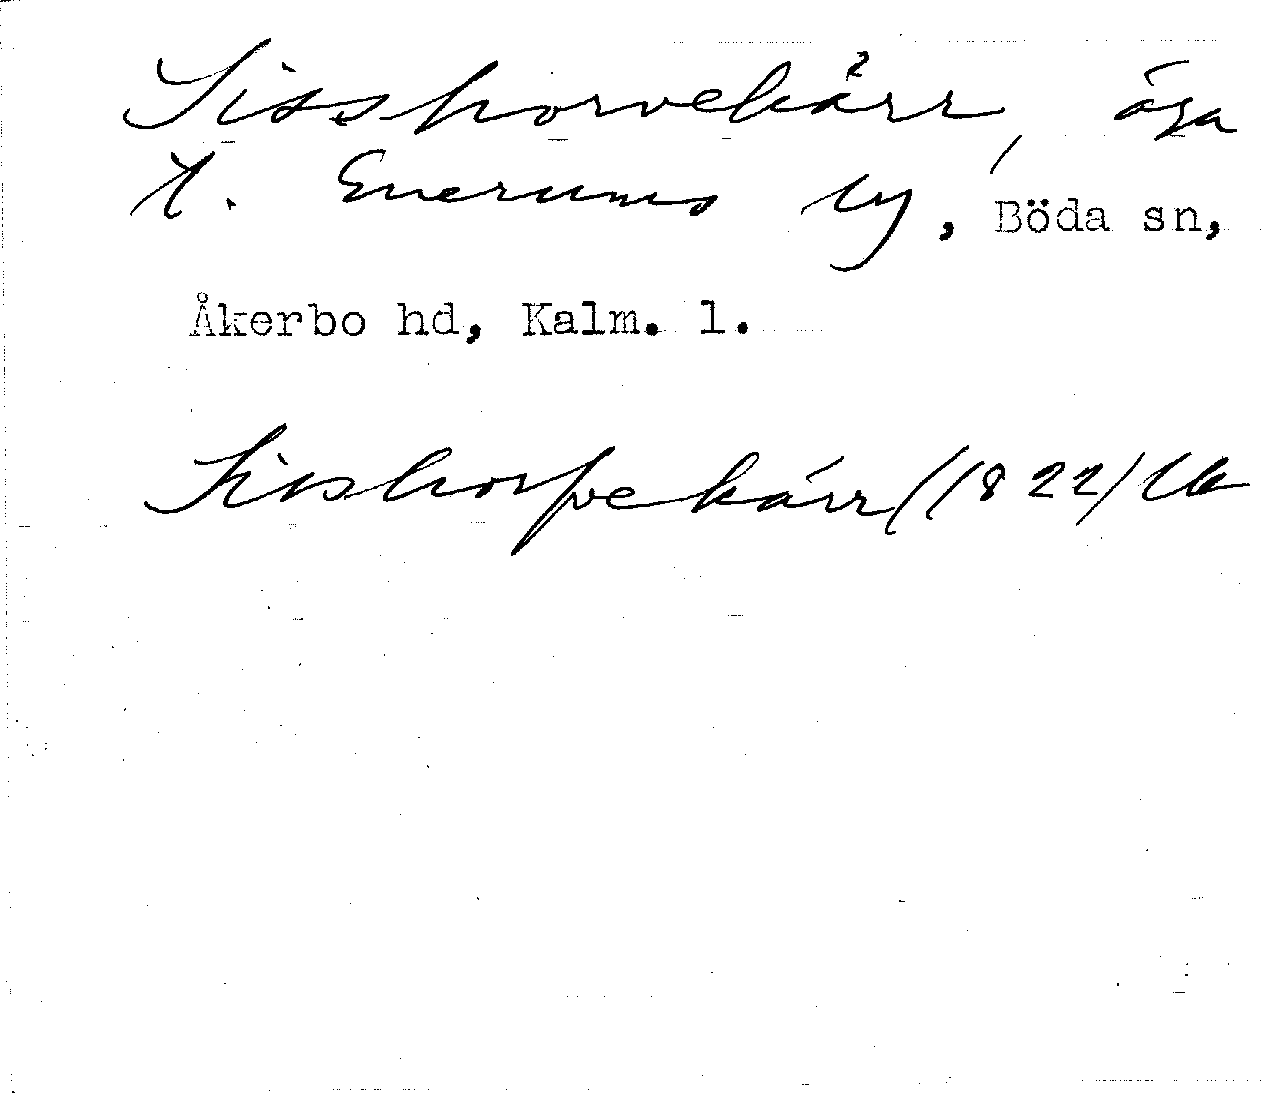 Sisshorvekärr, äga
t. Enerums by, Böda sn,
Åkerbo hd, Kalm. l.
Sishorfvekärr (1822)